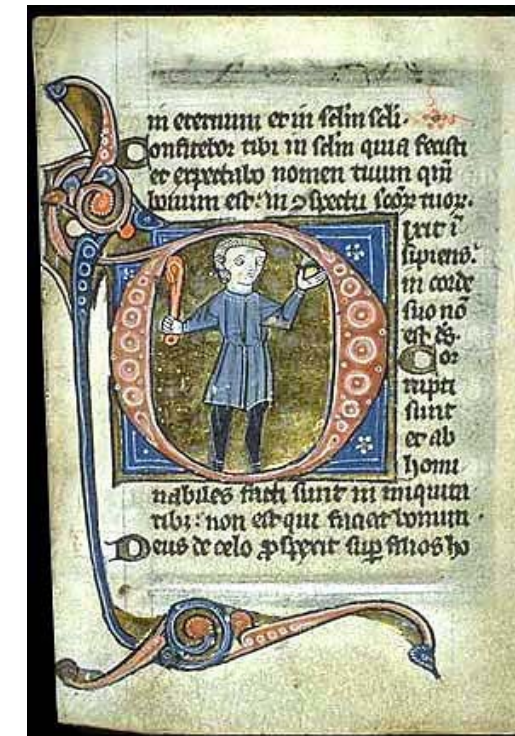 in eternum et in sclm scli.
Confitebor tibi in sclm quia fecisti
et expectabo nomen tuum qm̄
bonum est: in ɔspectu scōꝝ tuoꝝ.
Dixit ī
sipiens:
in corde
suo nō
est ds̄.
Cor
rupti
sunt
et ab
homi
nabiles facti sunt in iniquita
tibꝫ: non est qui faciat bonum.
Deus de celo ꝓspexit suꝑ filios ho